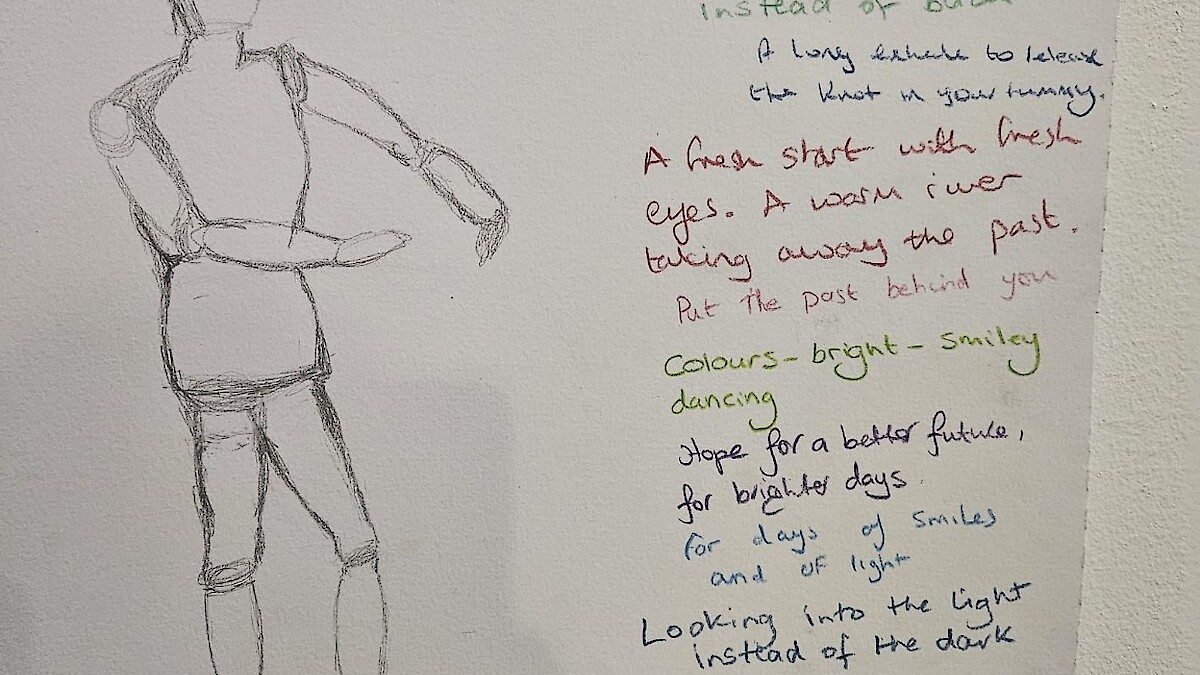 instead of back
A long exhale to release
the knot in your tummy.
A fresh start with fresh
eyes. A warm river
taking away the past.
Put the past behind you
Colours - bright - smiley
dancing
Hope for a better future,
for brighter days
for days of smiles
and of light
Looking into the light
instead of the dark